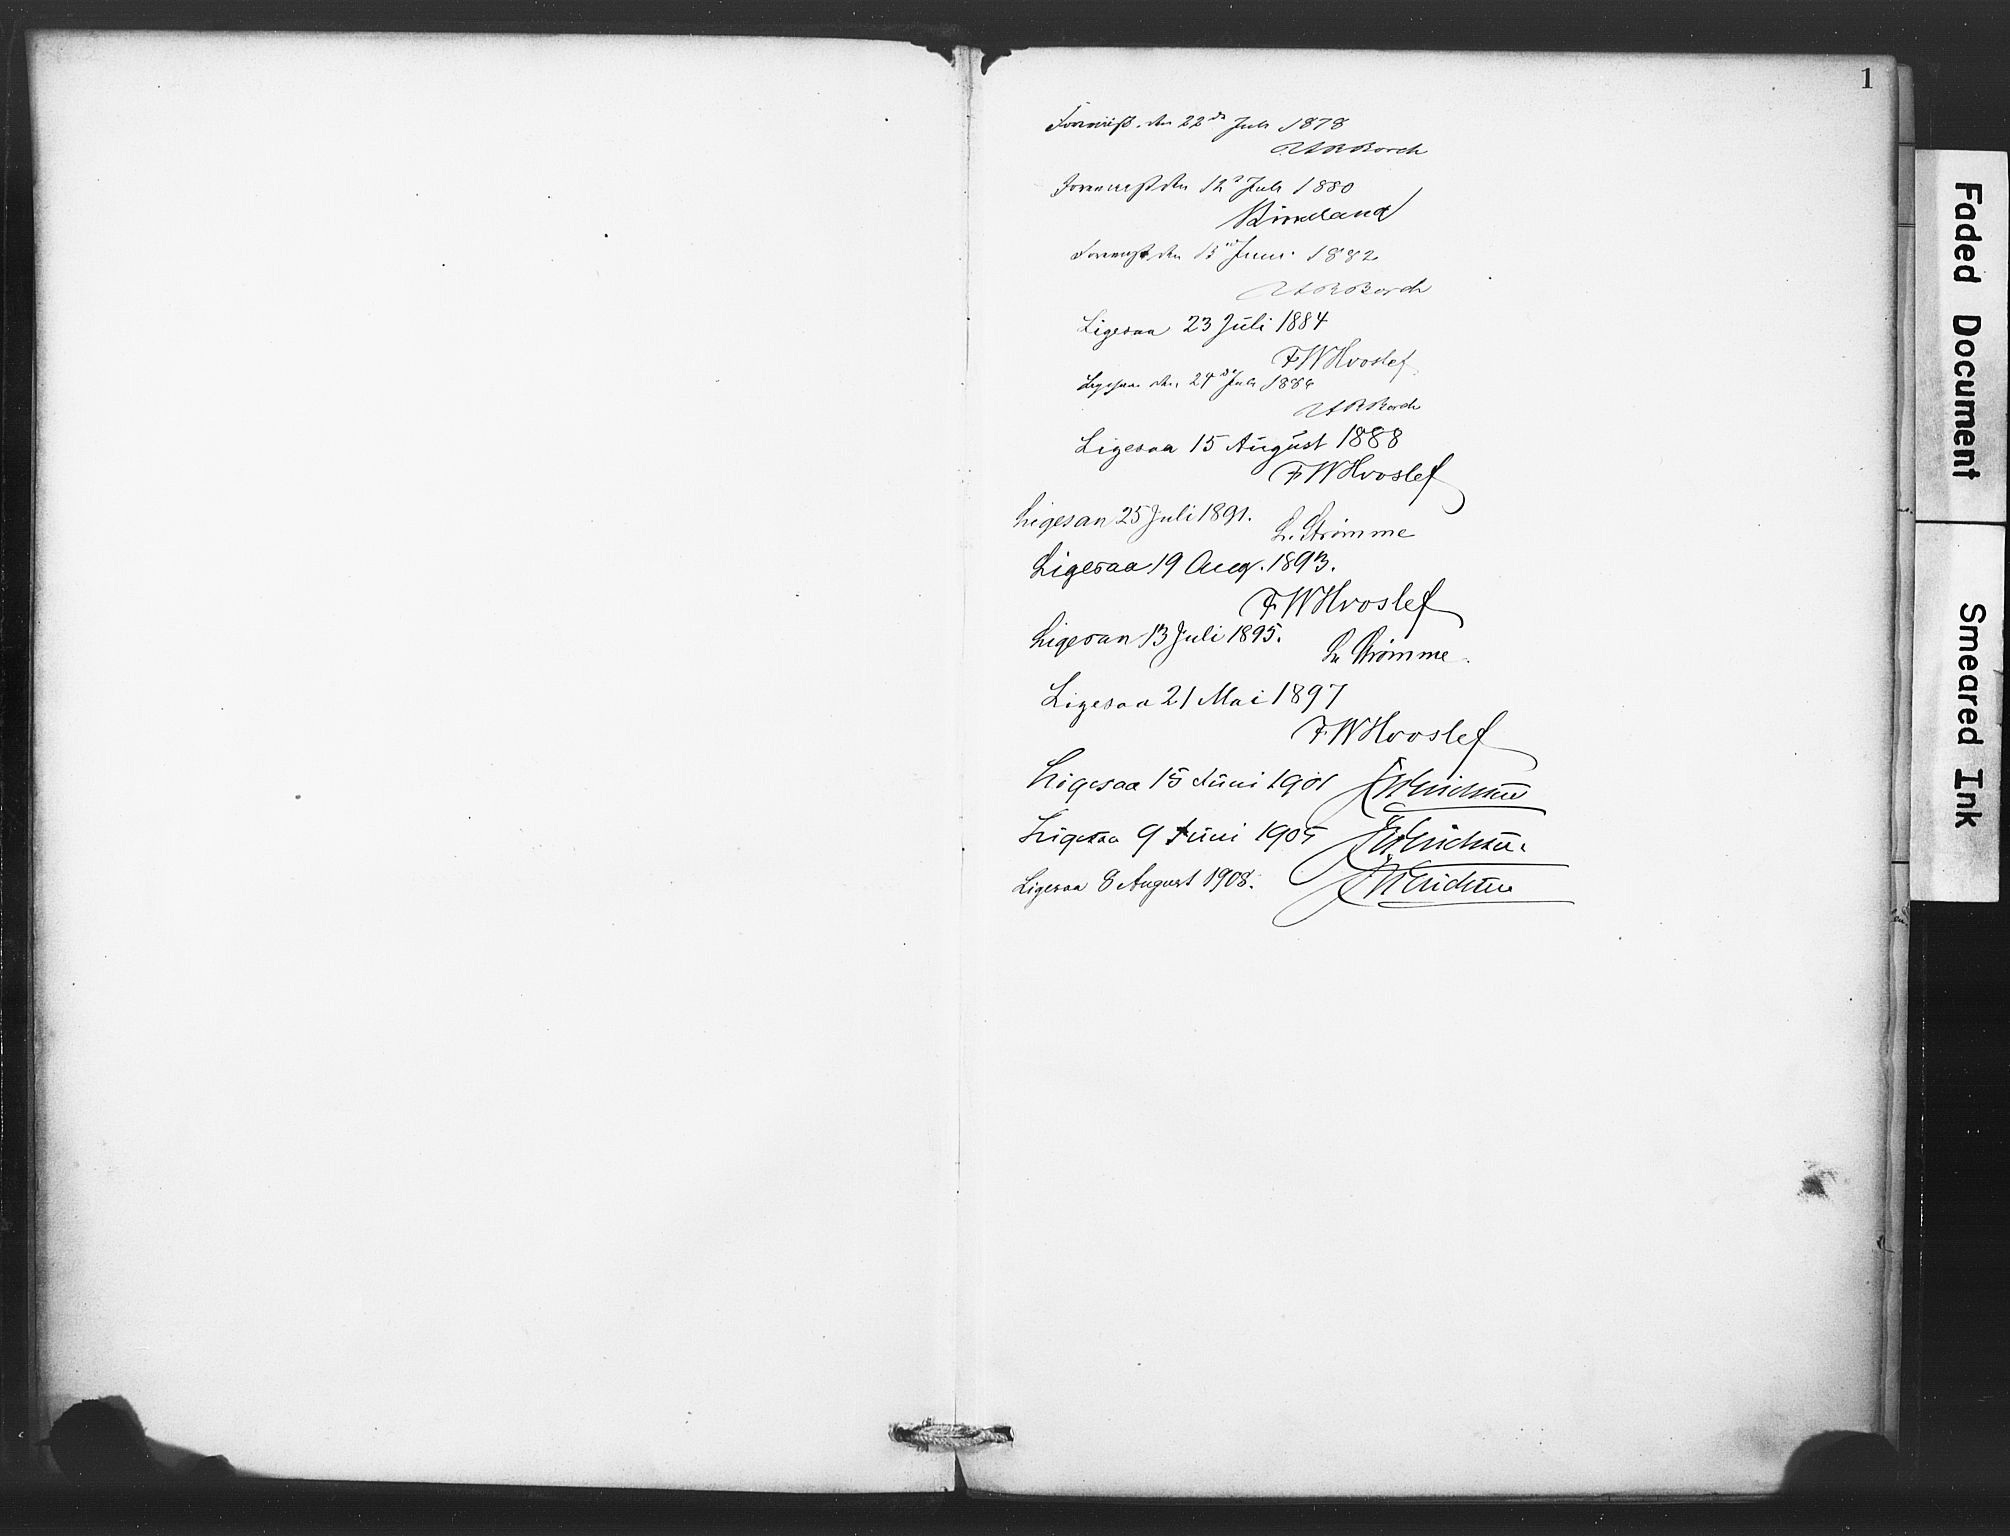 1
Forevist den 22de Juli 1878
Forevist den 12te Juli 1880
Birkeland
Forevist den 15de Juni 1882
Ligesaa 23 Juli 1884
FWHvoslef
Ligesaa den 24de Juli 1886
Ligesaa 15 August 1888
FWHvoslef
Ligesaa 25 Juli 1891.
L. Strømme
Ligesaa 19 Aug. 1893.
FWHvoslef
Ligesaa 13 Juli 1895.
Strømme.
Ligesaa 21 Mai 1897
FWHvoslef
Ligesaa 15 Juni 1901
Ligesaa 9 Juni 1905
Ligesaa 8 August 1908.
Faded Document
Smeared Ink